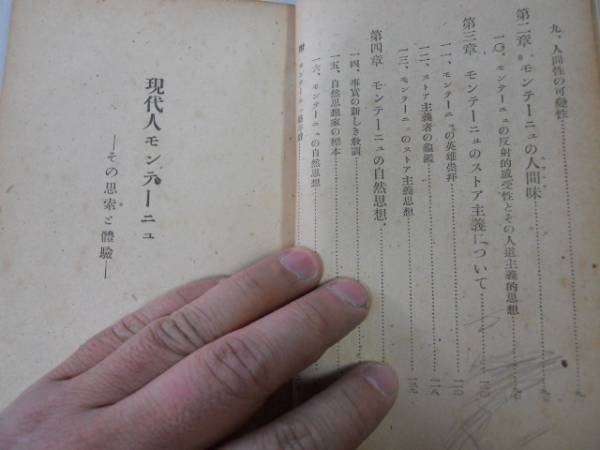 九、人間性の可變性
第二章 モンテーニュの人間味
一〇、モンテーニュの反射的感受性とその人道主義的思想
第三章 モンテーニュのストア主義について
一一、モンテーニュの英雄崇拜
一二、ストア主義者の龜鑑
一三、モンテーニュのストア主義思想
第四章 モンテーニュの自然思想
一四、事實の新しき教訓
一五、自然思想家の標本
一六、モンテーニュの自然思想
現代人モンテーニュ
―その思索と體驗―